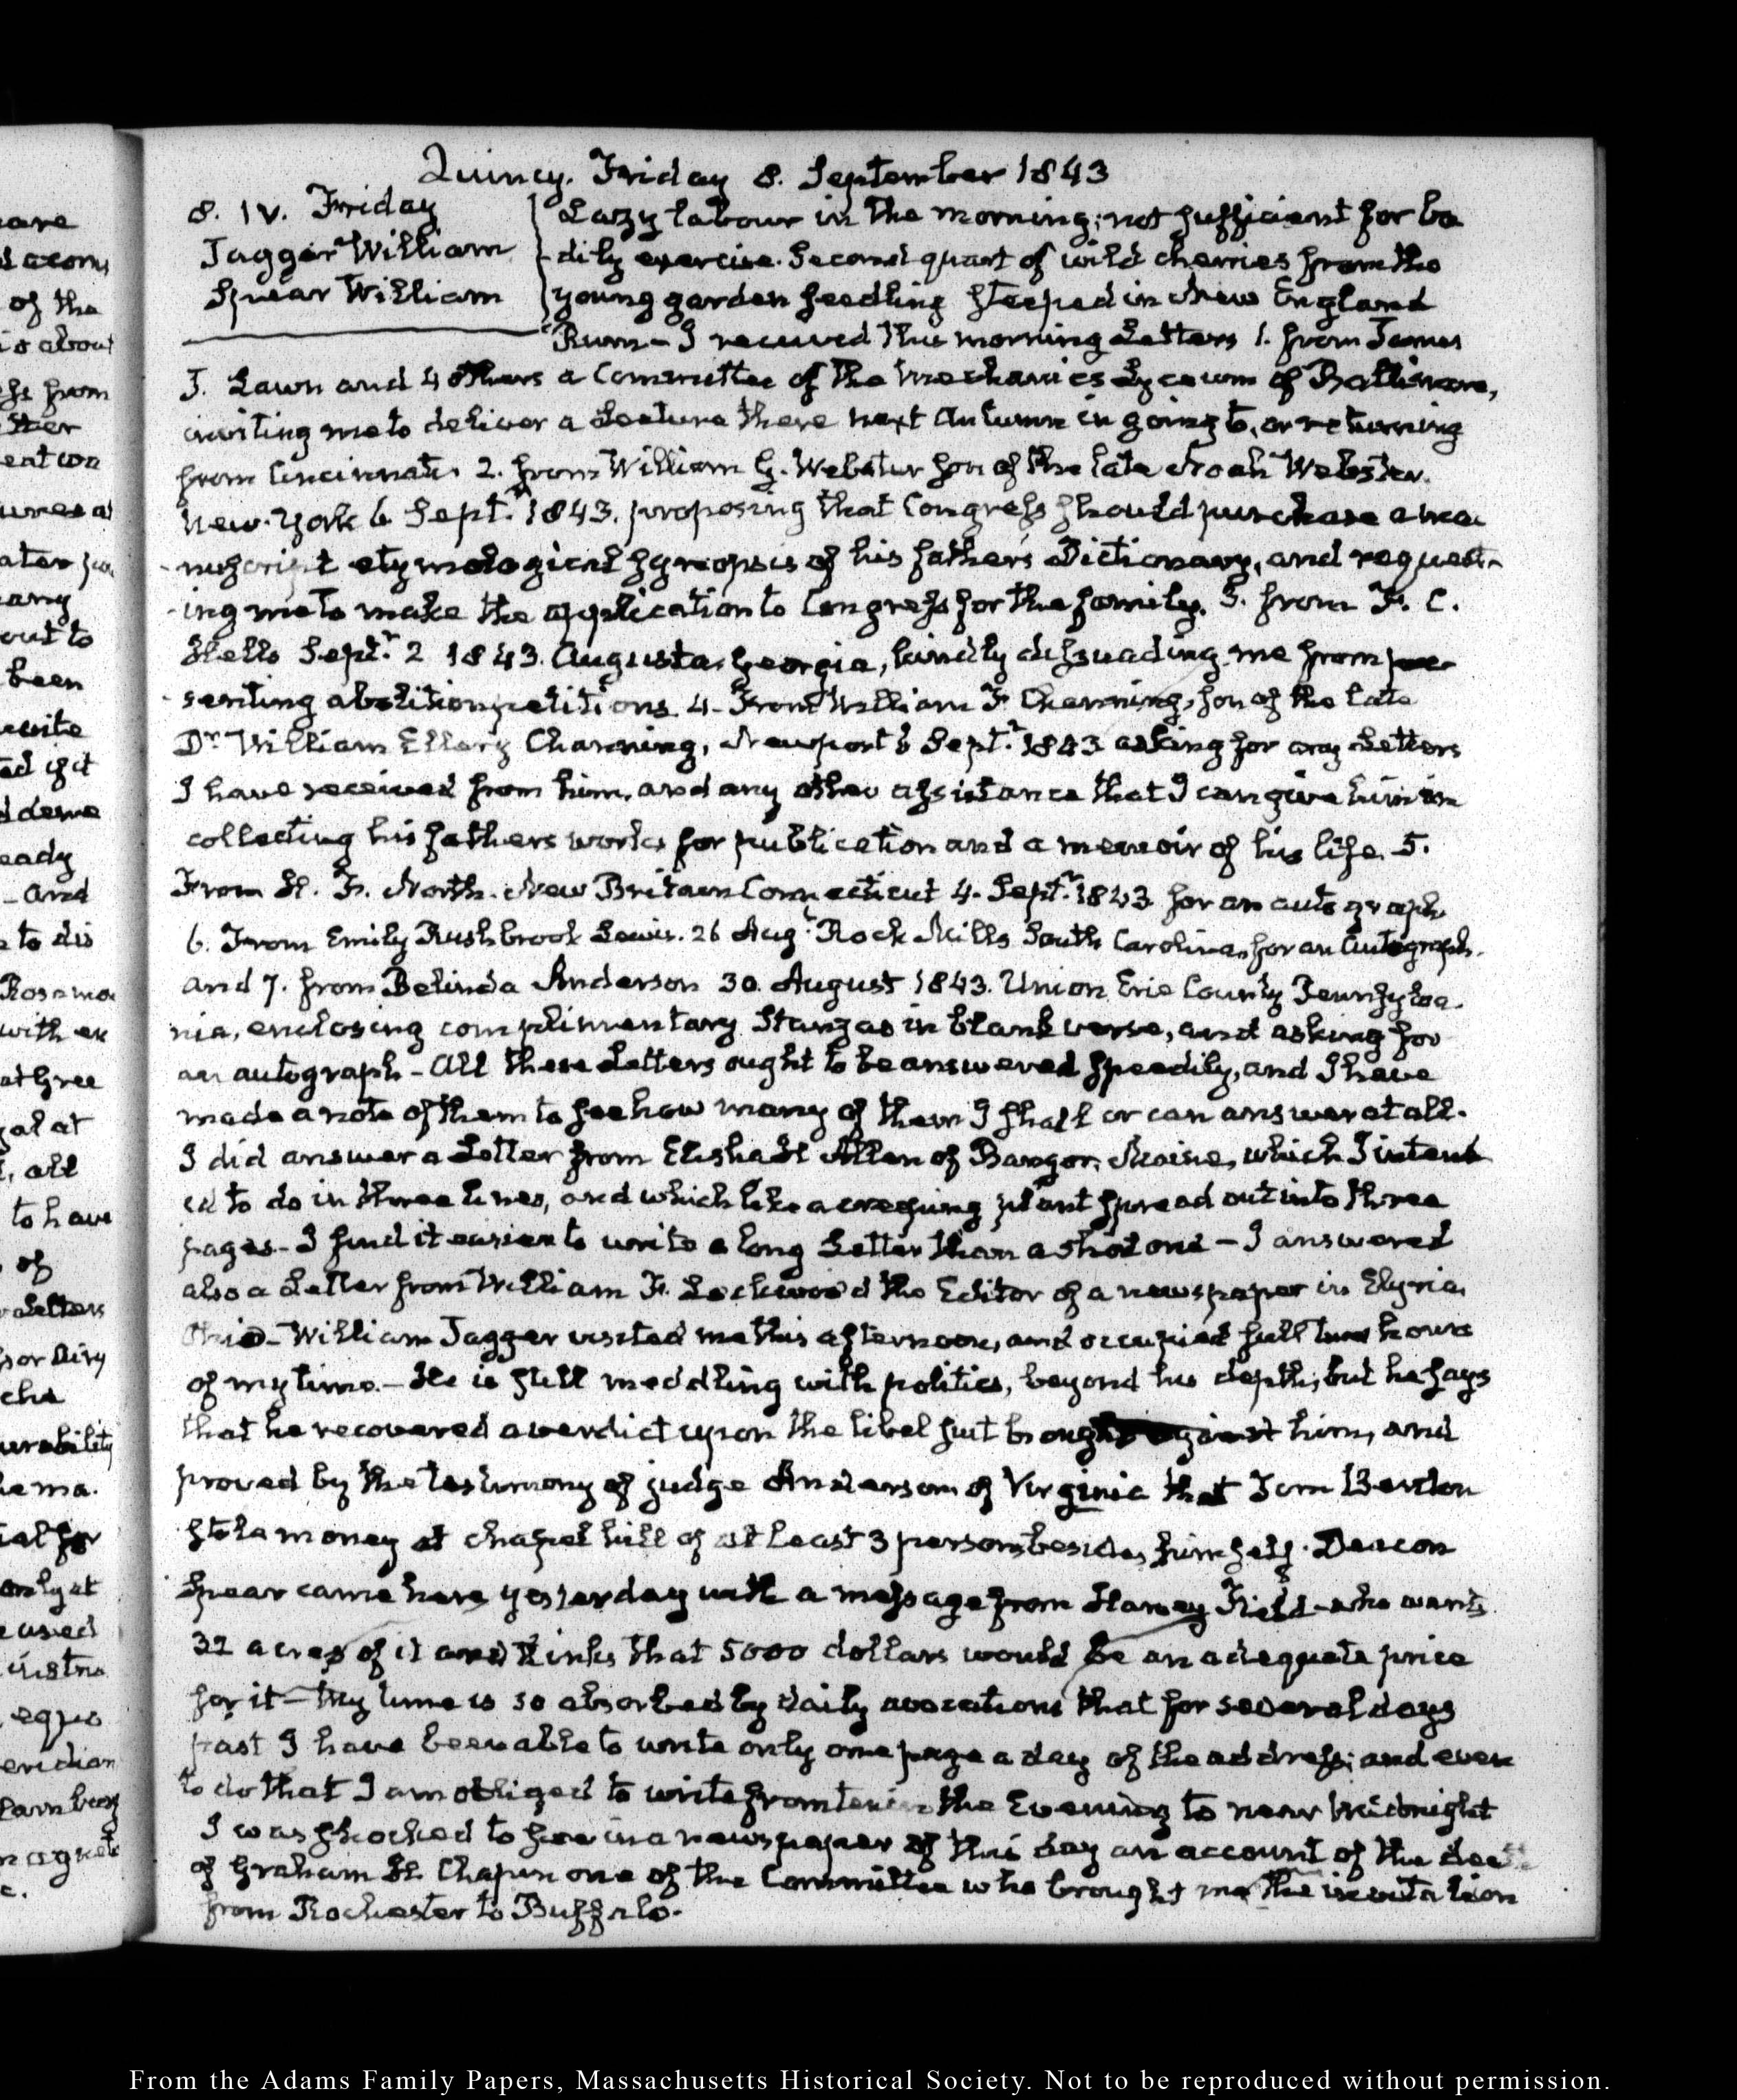 Quincy. Friday 8. September 1843
8. IV. Friday
Jagger William
Spear William
Lazy labour in the morning; not sufficient for bo
-dily exercise. Second quart of wild cherries from the
young garden seedling steeped in New England
Rum - I received this morning Letters 1. from James
J. Lawn and 4 others a Committee of the Mechanics Lyceum of Baltimore,
inviting me to deliver a Lecture there next Autumn in going to, or returning
from Cincinnati. 2. from William G. Webster son of the late Noah Webster.
New-York 6 Septr. 1843. proposing that Congress should purchase a ma
-nuscript etymological synopsis of his father's Dictionary, and request-
-ing me to make the application to Congress for the family. 3. from F. C.
Septr. 2 1843. Augusta, Georgia, kindly dissuading me from pre
-senting abolition petitions. 4- From William F Channing, son of the late
Dr. William Ellery Channing, Newport 6 Septr. 1843 asking for any Letters
I have received from him, and any other assistance that I can give him in
collecting his fathers works for publication and a memoir of his life. 5.
From H. F. North. New Britain Connecticut 4. Septr. 1843 for an autograph
6. From Emily Rushbrook Lewis. 26 Augt. Rock Mills South Carolina, for an Autograph.
and 7. from Belinda Anderson 30. August 1843. Union Erie County Pennsylva-
nia, enclosing complimentary Stanzas in blank verse, and asking for
an autograph - All these Letters ought to be answered speedily, and I have
made a note of them to see how many of them I shall or can answer at all.
I did answer a Letter from Elisha H Allen of Bangor, Maine, which I intend
ed to do in three lines, and which like a creeping plant spread out into three
pages - I find it easier to write a long Letter than a short one - I answered
also a Letter from William F. Lockwood the Editor of a newspaper in Elyria
Ohio - William Jagger visited me this afternoon, and occupied full two hours
of my time. - He is still meddling with politics, beyond his depth; but he says
that he recovered a verdict upon the libel suit brought against him, and
proved by the testimony of judge Anderson of Virginia that Tom Benton
stole money at chapel hill of at least 3 persons besides himself. Deacon
Spear came here yesterday with a message from Harvey Field who wants
32 acres of it and thinks that 5000 dollars would be an adequate price
for it - My time is so absorbed by daily avocations that for several days
past I have been able to write only one page a day of the address; and even
to do that I am obliged to write from ten in the Evening to near Midnight
I was shocked to see in a newspaper of this day an account of the death
of Graham H Chapin one of the Committee who brought me the invitation
from Rochester to Buffalo.
From the Adams Family Papers, Massachusetts Historical Society. Not to be reproduced without permission.